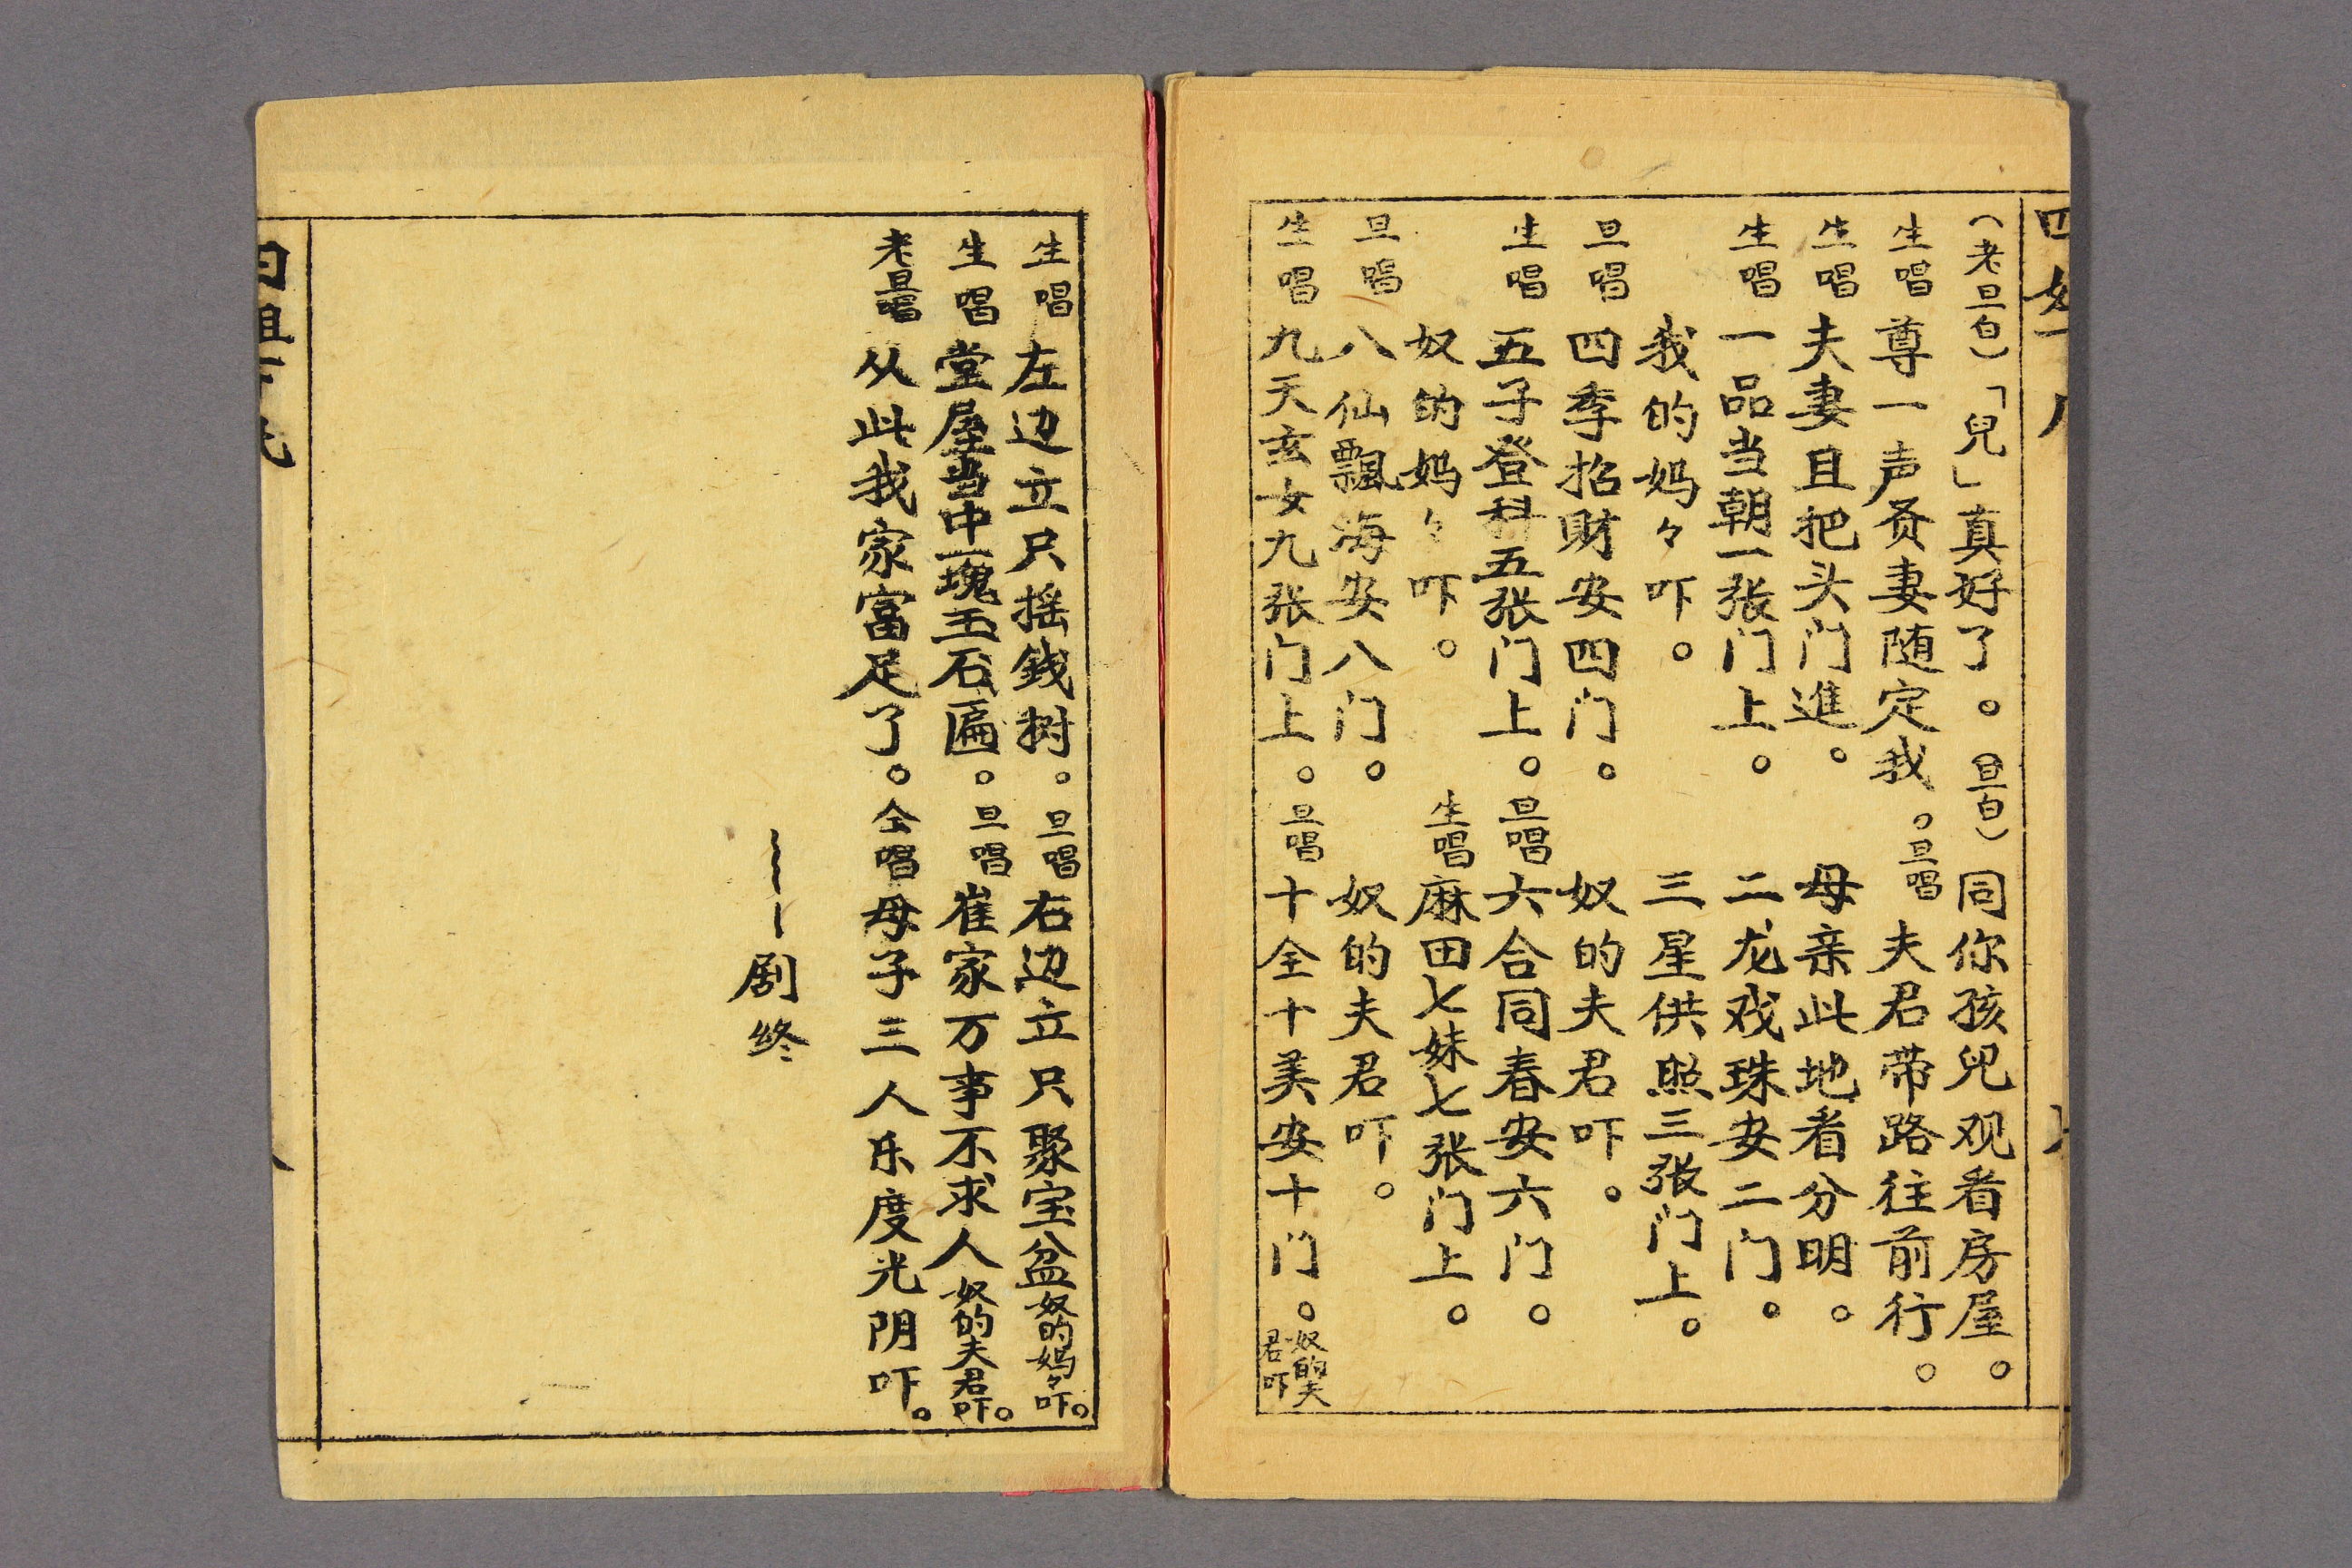 （老旦白）「兒」真好了。（旦白）同你孩兒观看房屋。
生唱 尊一声贤妻随定我。旦唱 夫君带路往前行。
生唱 夫妻且把头门進。 母亲此地看分明。
生唱 一品当朝一张门上。 二龙戏珠安二门。
我的妈々吓。 三星供照三张门上。
旦唱 四季招財安四门。 奴的夫君吓。
生唱 五子登科五张门上。旦唱 六合同春安六门。
奴的妈々吓。 生唱 麻田七妹七张门上。
旦唱 八仙飄海安八门。 奴的夫君吓。
生唱 九天玄女九张门上。旦唱 十全十美安十门。奴的夫君吓
生唱 左边立只摇钱树。旦唱 右边立只聚宝盆奴的妈々吓。
生唱 堂屋当中一塊玉石匾。旦唱 崔家万事不求人奴的夫君吓。
老旦唱 从此我家富足了。仝唱 母子三人乐度光阴吓。
剧终